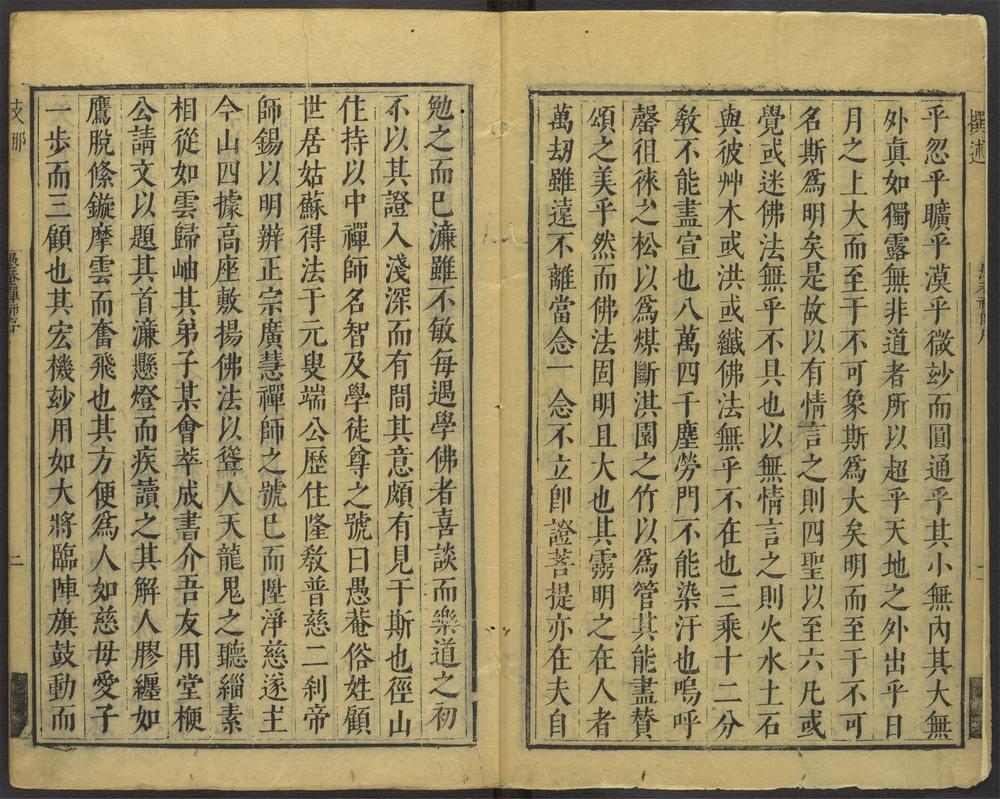 撰述
乎忽乎曠乎漠乎微玅而圓通乎其小無內其大無
外真如獨露無非道者所以超乎天地之外出乎日
月之上大而至于不可象斯爲大矣明而至于不可
名斯爲明矣是故以有情言之則四聖以至六凡或
覺或迷佛法無乎不具也以無情言之則火水土石
與彼艸木或洪或纖佛法無乎不在也三乘十二分
敎不能盡宣也八萬四千塵勞門不能染汙也嗚呼
罄徂徠之松以爲煤斷淇園之竹以爲管其能盡贊
頌之美乎然而佛法固明且大也其靈明之在人者
萬劫雖遠不離當念一念不立卽證菩提亦在夫自
勉之而巳濂雖不敏每遇學佛者喜談而樂道之初
不以其證入淺深而有間其意頗有見于斯也徑山
住持以中禪師名智及學徒尊之號曰愚菴俗姓顧
世居姑蘇得法于元叟端公歷住隆敎普慈二刹帝
師錫以明辨正宗廣慧禪師之號巳而陞淨慈遂主
今山四據高座敷揚佛法以聳人天龍鬼之聽緇素
相從如雲歸岫其弟子某會萃成書介吾友用堂楩
公請文以題其首濂懸燈而疾讀之其解人膠纏如
鷹脫絛鏇摩雲而奮飛也其方便爲人如慈母愛子
一步而三顧也其宏機玅用如大將臨陣旗鼓動而
支那
愚菴禪師序
二